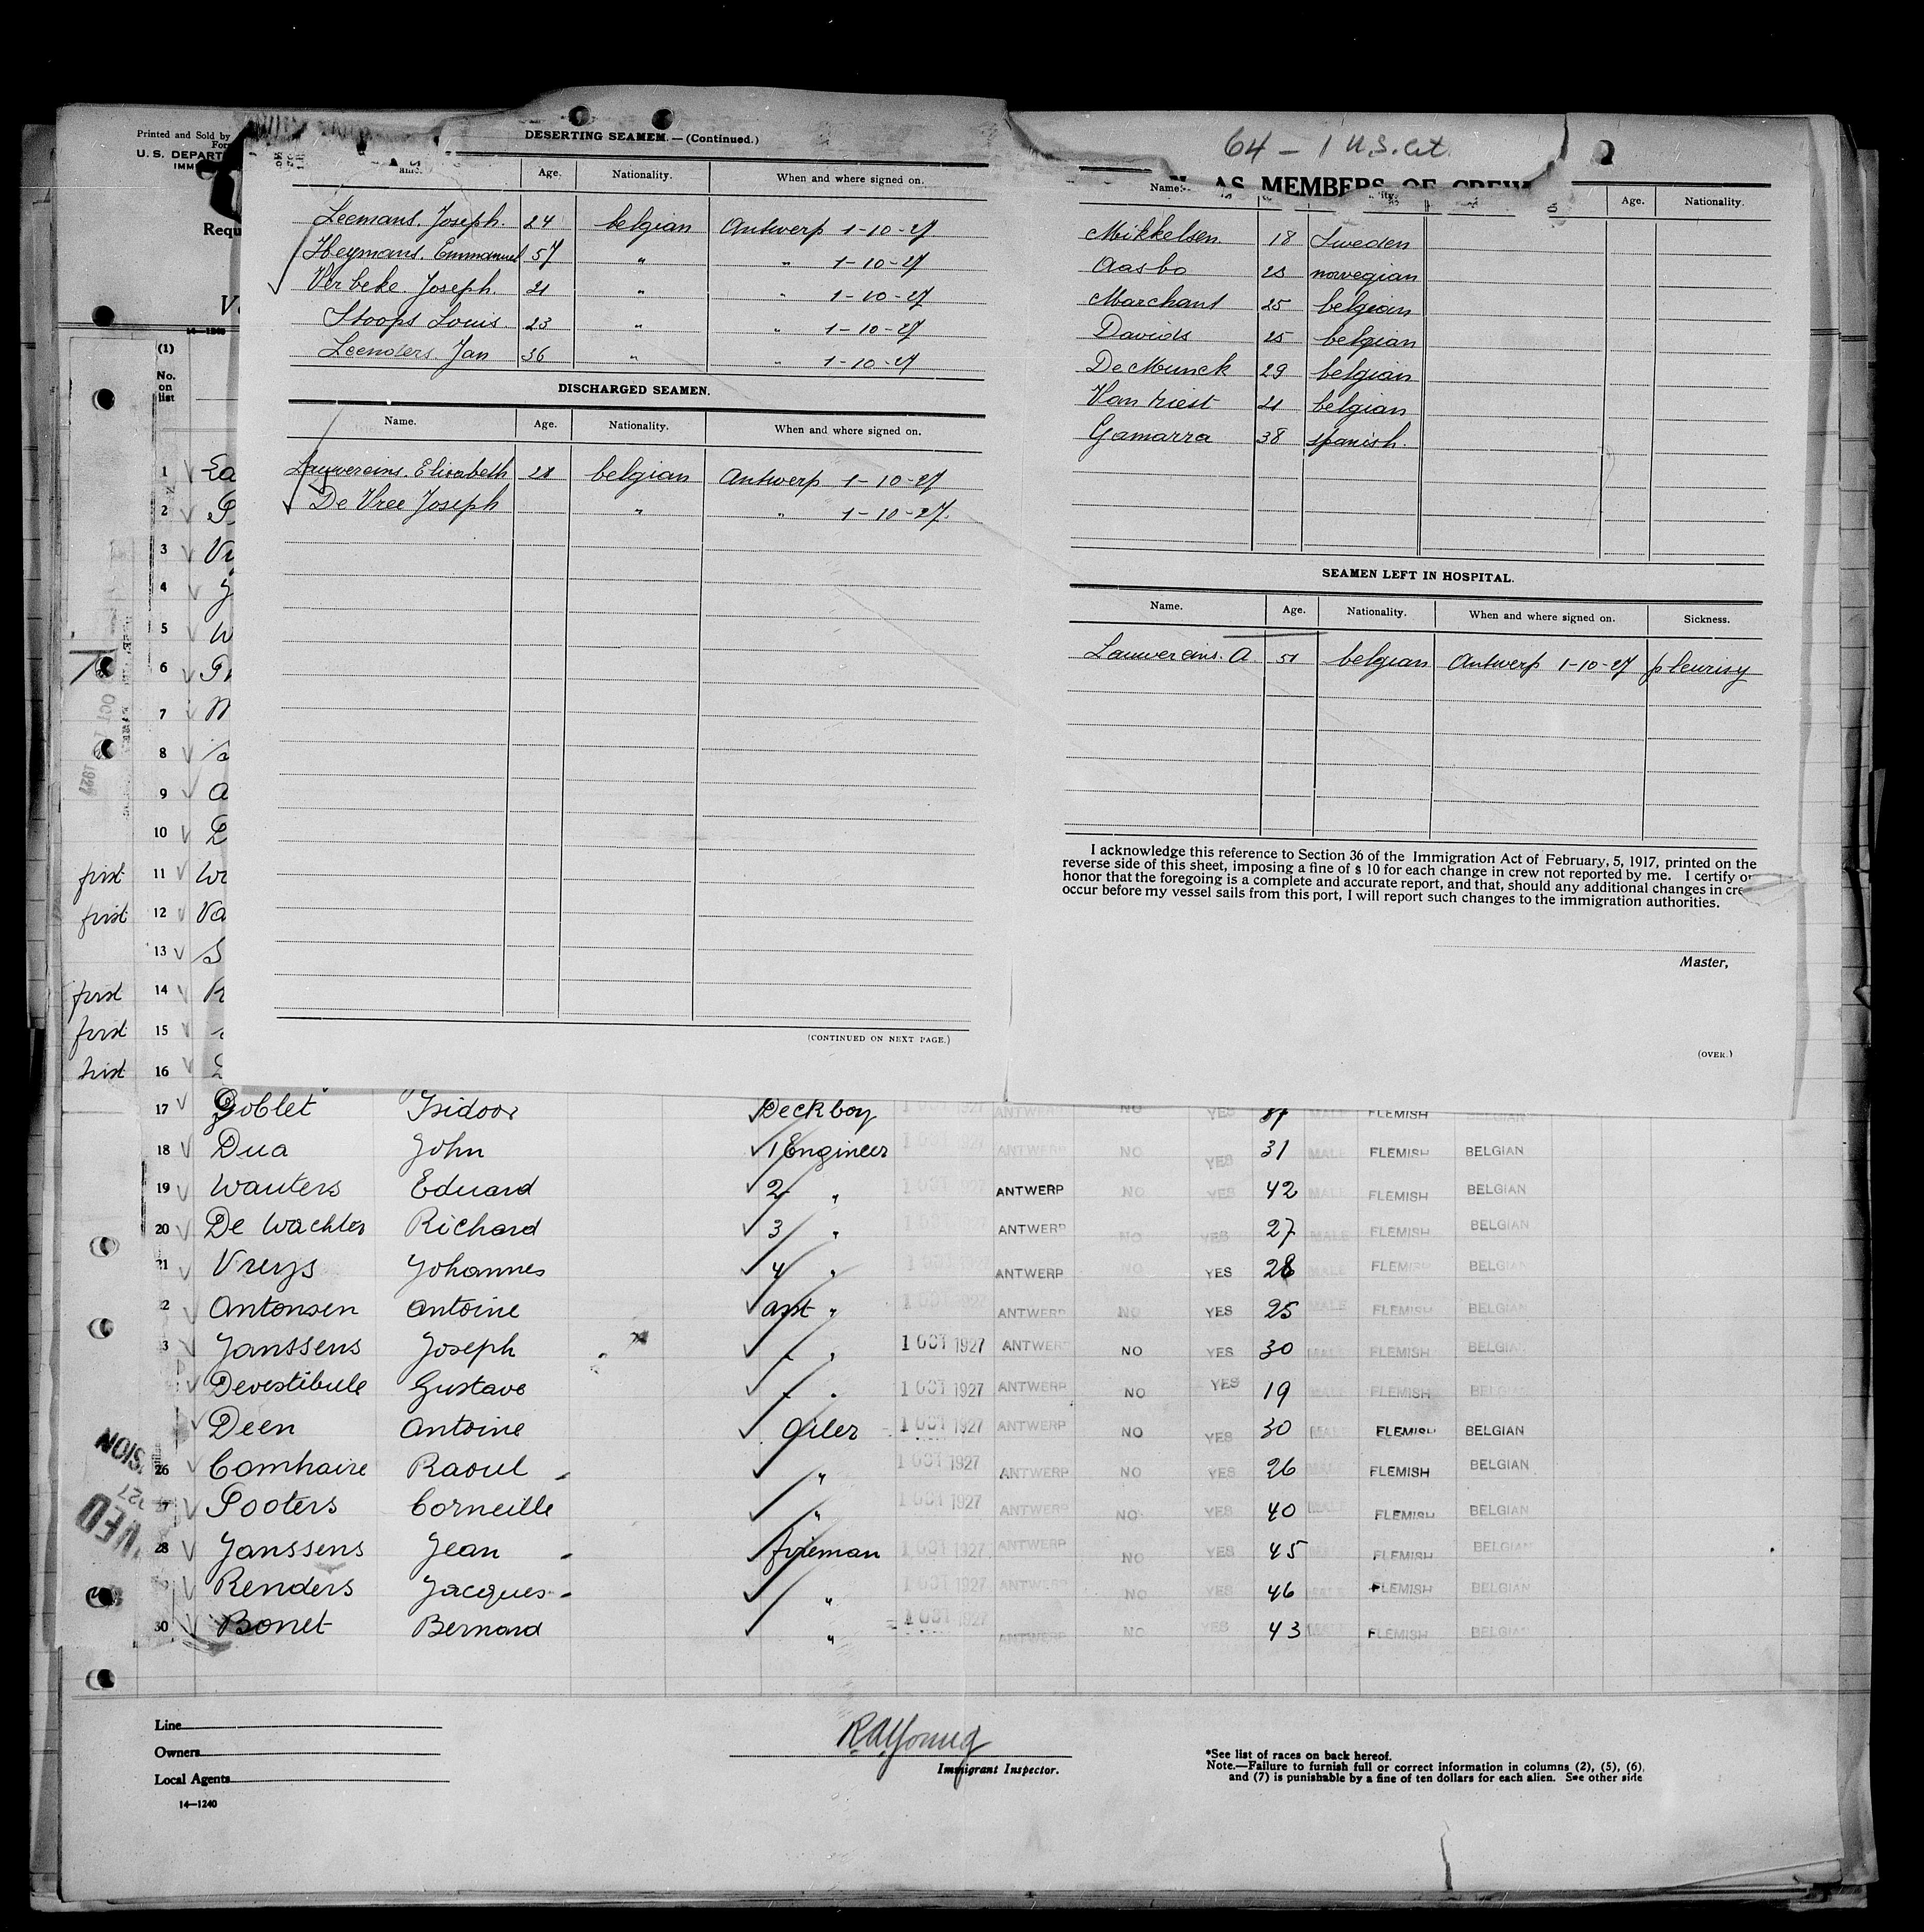 Printed and Sold by
DESERTING SEAMEM.—(Continued.)
Age. Nationality. When and where signed on.
Leemans. Joseph. 24 belgian Antwerp 1-10-27.
Heymans. Emmanuel 57 " " 1-10-27
Verbeke. Joseph. 21 " " 1-10-27
Stoops Louis. 23 " " 1-10-27
Leenders. Jan 36 " " 1-10-27
DISCHARGED SEAMEN.
Name. Age. Nationality. When and where signed on.
Lauwereins. Elisabeth 28 belgian Antwerp 1-10-27
De Vree Joseph " " 1-10-27.
(CONTINUED ON NEXT PAGE.)
64 - 1 U.S. Cit.
AS MEMBERS OF CREW
Name. Age. Nationality.
Mikkelsen. 18 Sweden
Aasbo 28 norwegian
Marchant 25 belgian
Davids 25 belgian
De Munck 29 belgian
Van Driest 21 belgian
Gamarra 38 spanish.
SEAMEN LEFT IN HOSPITAL.
Name. Age. Nationality. When and where signed on. Sickness.
Lauwereins. A. 51 belgian Antwerp 1-10-27 pleurisy
I acknowledge this reference to Section 36 of the Immigration Act of February, 5, 1917, printed on the
reverse side of this sheet, imposing a fine of $ 10 for each change in crew not reported by me. I certify on
honor that the foregoing is a complete and accurate report, and that, should any additional changes in cre
occur before my vessel sails from this port, I will report such changes to the immigration authorities.
Master,
(OVER.)
(1)
No.
on
list
1
2
3
4
5
6
7
8
9
10
first 11
first 12
13
first 14
first 15
first 16
17 Goblet Isidoor Deckboy 1927 ANTWERP NO YES FLEMISH BELGIAN
18 Dua John 1 Engineer ANTWERP NO YES 31 MALE FLEMISH BELGIAN
19 Wauters Eduard 2 " 1 OCT 1927 ANTWERP NO YES 42 MALE FLEMISH BELGIAN
20 De Wachter Richard 3 " ANTWERP NO YES 27 MALE FLEMISH BELGIAN
21 Vreys Johannes 4 " ANTWERP NO YES 28 MALE FLEMISH BELGIAN
2 Antonsen Antoine asst " 1 OCT 1927 ANTWERP NO YES 25 MALE FLEMISH BELGIAN
3 Janssens Joseph " " 1 OCT 1927 ANTWERP NO YES 30 MALE FLEMISH BELGIAN
Devestibule Gustave " " 1 OCT 1927 ANTWERP NO YES 19 MALE FLEMISH BELGIAN
Deen Antoine Oiler 1 OCT 1927 ANTWERP NO YES 30 MALE FLEMISH BELGIAN
26 Comhaire Raoul " 1 OCT 1927 ANTWERP NO YES 26 MALE FLEMISH BELGIAN
27 Pooters Corneille " 1 OCT 1927 ANTWERP NO YES 40 MALE FLEMISH BELGIAN
28 Janssens Jean fireman 1 OCT 1927 ANTWERP NO YES 45 MALE FLEMISH BELGIAN
Renders Jacques " 1 OCT 1927 ANTWERP NO YES 46 MALE FLEMISH BELGIAN
30 Bonet Bernard " 1 OCT 1927 ANTWERP NO YES 43 MALE FLEMISH BELGIAN
Line
Owners
Local Agents
14—1240
R.A. Young
Immigrant Inspector.
*See list of races on back hereof.
Note.—Failure to furnish full or correct information in columns (2), (5), (6),
and (7) is punishable by a fine of ten dollars for each alien. See other side